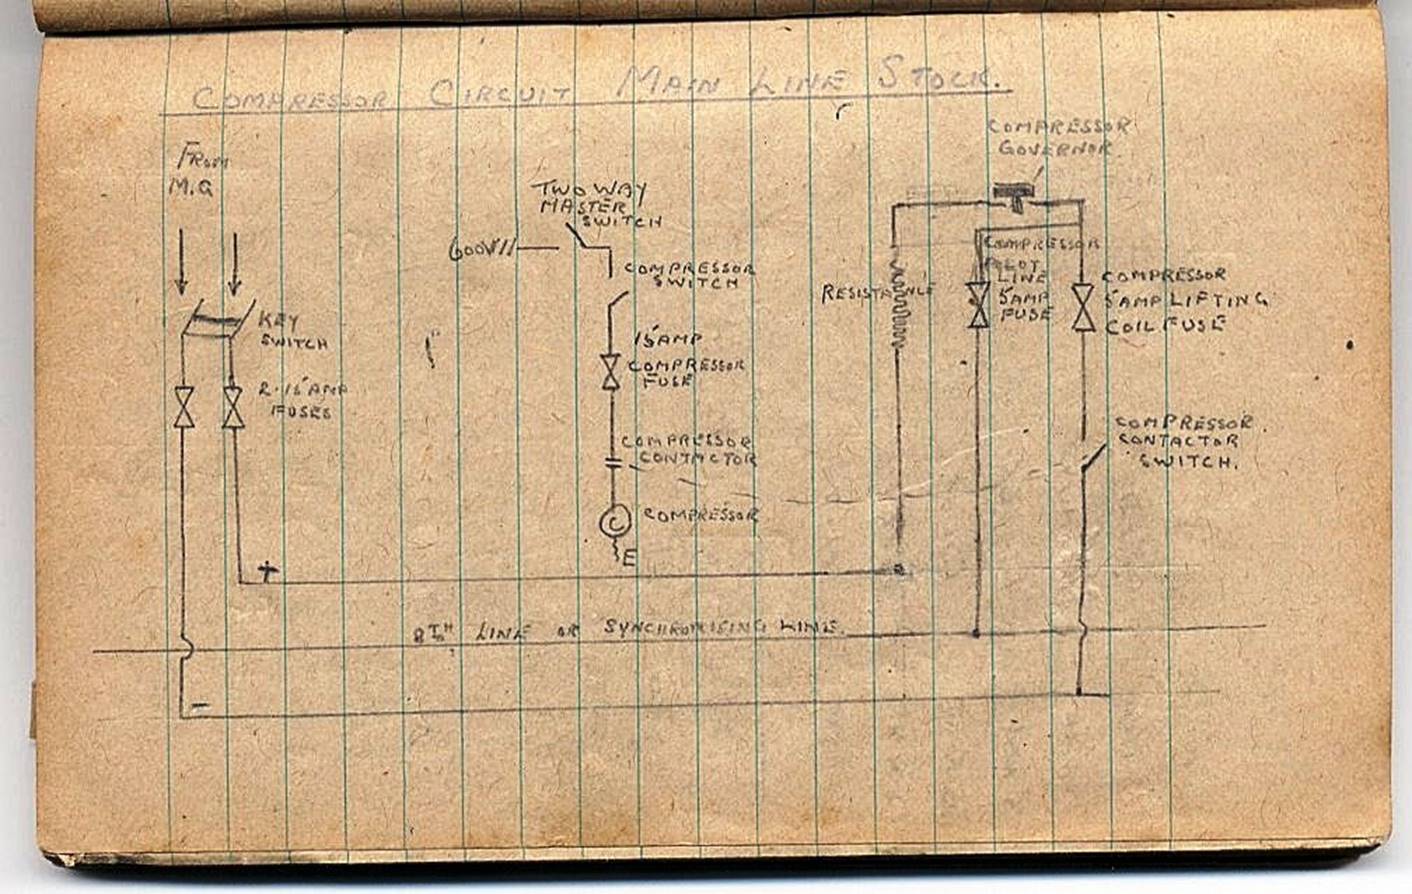 COMPRESSOR CIRCUIT MAIN LINE STOCK.
FROM
M.G
KEY
SWITCH
2.15 AMP
FUSES
+
-
TWO WAY
MASTER
SWITCH
600V
COMPRESSOR
SWITCH
15 AMP
COMPRESSOR
FUSE
COMPRESSOR
CONTACTOR
C
COMPRESSOR
E
8TH LINE OR SYNCHRONISING LINE.
COMPRESSOR
GOVERNOR
RESISTANCE
COMPRESSOR
PILOT
LINE
5AMP
FUSE
COMPRESSOR
5AMP LIFTING
COIL FUSE
COMPRESSOR
CONTACTOR
SWITCH.